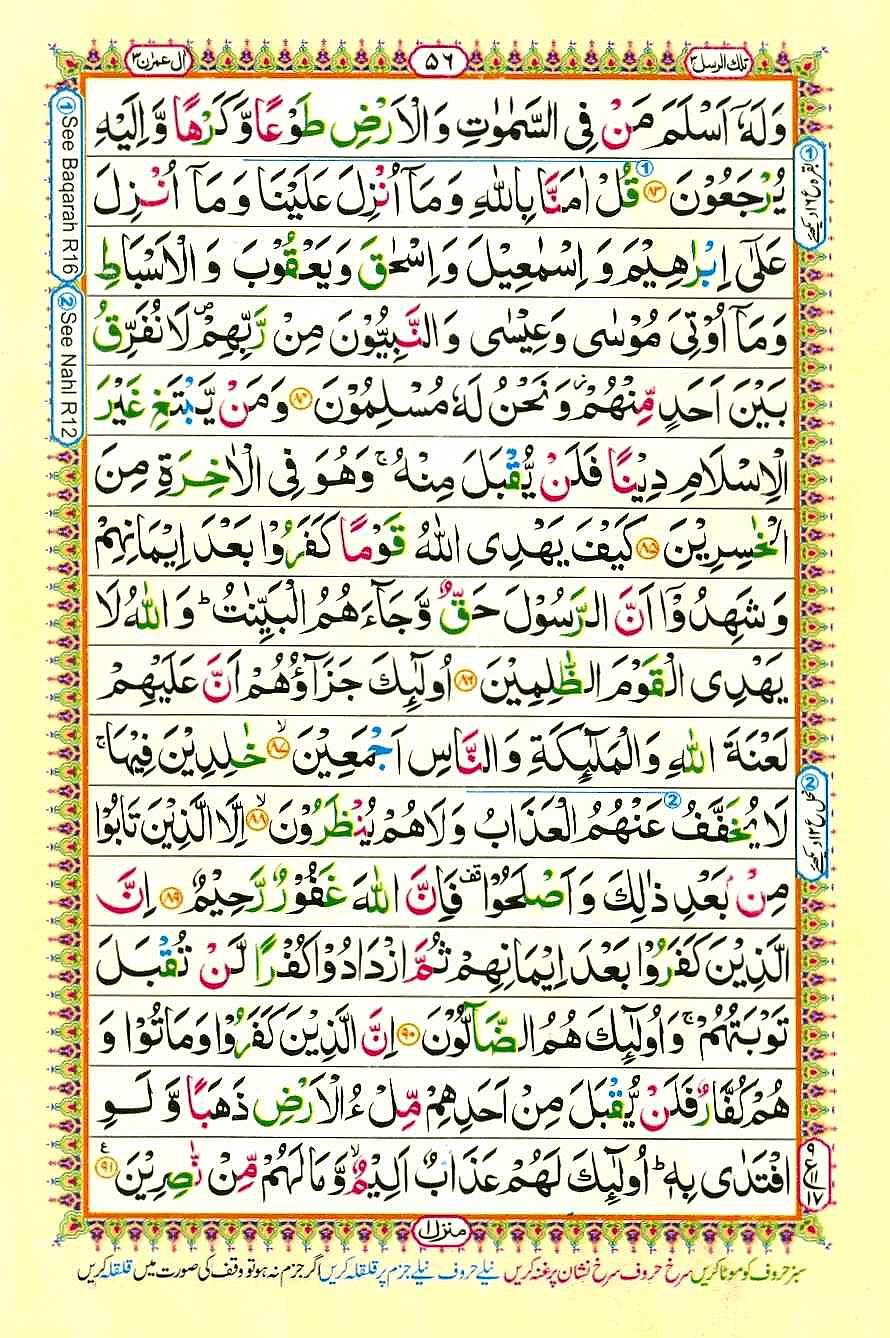 تلك الرسل ٣
٥٦
اٰل عمران ٣
وَلَهٗۤ اَسْلَمَ مَنْ فِی السَّمٰوٰتِ وَالْاَرْضِ طَوْعًا وَّكَرْهًا وَّاِلَیْهِ
یُرْجَعُوْنَ ﴿۸۳﴾ قُلْ اٰمَنَّا بِاللّٰهِ وَمَاۤ اُنْزِلَ عَلَیْنَا وَمَاۤ اُنْزِلَ
عَلٰۤی اِبْرٰهِیْمَ وَاِسْمٰعِیْلَ وَاِسْحٰقَ وَیَعْقُوْبَ وَالْاَسْبَاطِ
وَمَاۤ اُوْتِیَ مُوْسٰی وَعِیْسٰی وَالنَّبِیُّوْنَ مِنْ رَّبِّهِمْ ۪ لَا نُفَرِّقُ
بَیْنَ اَحَدٍ مِّنْهُمْ ؗ وَنَحْنُ لَهٗ مُسْلِمُوْنَ ﴿۸۴﴾ وَمَنْ یَّبْتَغِ غَیْرَ
الْاِسْلَامِ دِیْنًا فَلَنْ یُّقْبَلَ مِنْهُ ۚ وَهُوَ فِی الْاٰخِرَةِ مِنَ
الْخٰسِرِیْنَ ﴿۸۵﴾ كَیْفَ یَهْدِی اللّٰهُ قَوْمًا كَفَرُوْا بَعْدَ اِیْمَانِهِمْ
وَشَهِدُوْۤا اَنَّ الرَّسُوْلَ حَقٌّ وَّجَآءَهُمُ الْبَیِّنٰتُ ؕ وَاللّٰهُ لَا
یَهْدِی الْقَوْمَ الظّٰلِمِیْنَ ﴿۸۶﴾ اُولٰٓىِٕكَ جَزَآؤُهُمْ اَنَّ عَلَیْهِمْ
لَعْنَةَ اللّٰهِ وَالْمَلٰٓىِٕكَةِ وَالنَّاسِ اَجْمَعِیْنَ ۙ﴿۸۷﴾ خٰلِدِیْنَ فِیْهَا ۚ
لَا یُخَفَّفُ عَنْهُمُ الْعَذَابُ وَلَا هُمْ یُنْظَرُوْنَ ۙ﴿۸۸﴾ اِلَّا الَّذِیْنَ تَابُوْا
مِنْۢ بَعْدِ ذٰلِكَ وَاَصْلَحُوْا قف فَاِنَّ اللّٰهَ غَفُوْرٌ رَّحِیْمٌ ﴿۸۹﴾ اِنَّ
الَّذِیْنَ كَفَرُوْا بَعْدَ اِیْمَانِهِمْ ثُمَّ ازْدَادُوْا كُفْرًا لَّنْ تُقْبَلَ
تَوْبَتُهُمْ ۚ وَاُولٰٓىِٕكَ هُمُ الضَّآلُّوْنَ ﴿۹۰﴾ اِنَّ الَّذِیْنَ كَفَرُوْا وَمَاتُوْا وَ
هُمْ كُفَّارٌ فَلَنْ یُّقْبَلَ مِنْ اَحَدِهِمْ مِّلْءُ الْاَرْضِ ذَهَبًا وَّلَوِ
افْتَدٰی بِهٖ ؕ اُولٰٓىِٕكَ لَهُمْ عَذَابٌ اَلِیْمٌ ۙ وَّمَا لَهُمْ مِّنْ نّٰصِرِیْنَ ﴿۹۱﴾
① بقرہ ع ۱۶ دیکھئے
② نحل ع ۱۲ دیکھئے
① See Baqarah R16
② See Nahl R12
ع ۹ ۱۷
منزل ۱
سبز حروف کو موٹا کریں سرخ حروف سرخ نشان پر غنہ کریں نیلے حروف نیلے جزم پر قلقلہ کریں اگر جزم نہ ہو تو وقف کی صورت میں قلقلہ کریں